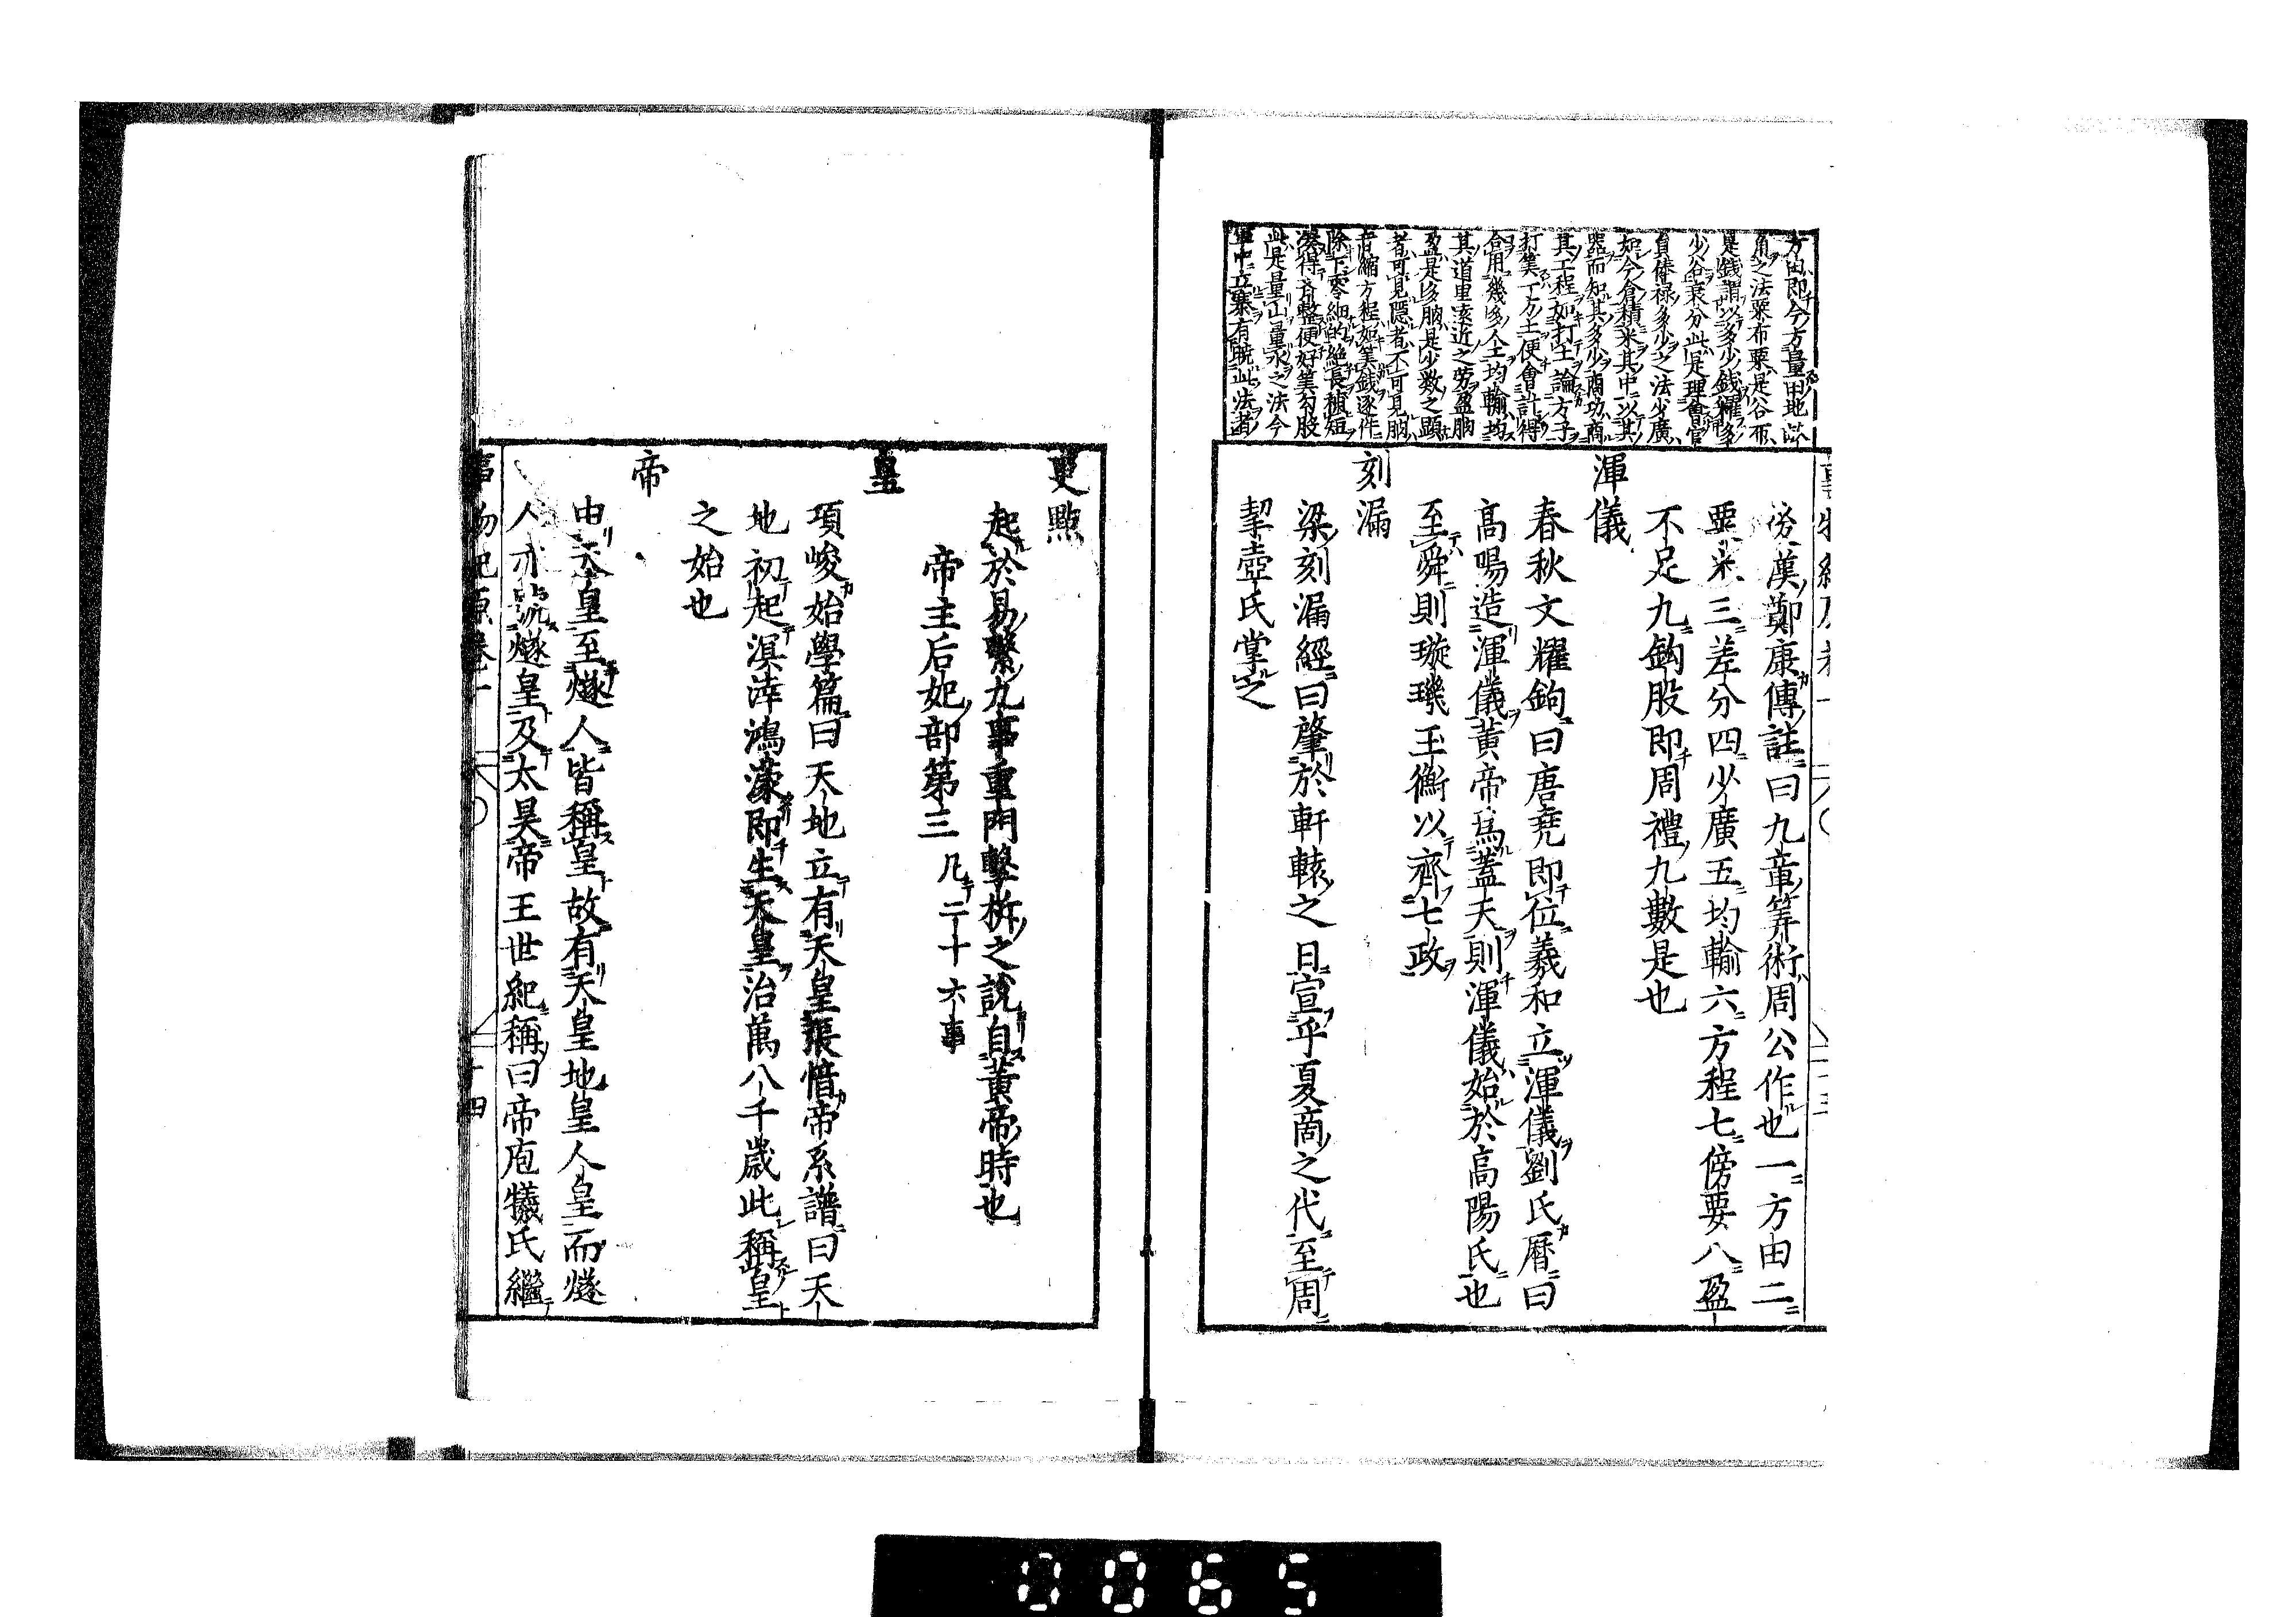 方田即今方量田地此
角之法粟布粟是谷布
是錢謂以多少錢糴多
少谷衰分此是理會官
員俸祿多少之法少廣
如今倉積米其中以其
器而知其多少商功商
其工程如打土論方子
打筭丁方土便會計得
合用幾多人工均輸均
其道里遠近之勞盈朒
盈是多朒是少數之顕
者可見隠者不可見朒
者縮方程如筭錢逐件
除下零細的絶長補短
湊得齊整便好筭勾股
此是量山量水之法今
軍中立寨有暁此法者
後漢鄭康傳註曰九章筭術周公作也一方由二
粟米三差分四少廣五均輸六方程七傍要八盈
不足九鈎股即周禮九數是也
渾儀
春秋文耀鉤曰唐堯即位羲和立渾儀劉氏曆曰
高陽造渾儀黃帝為蓋天則渾儀始於高陽氏也
至舜則璇璣玉衡以齊七政
刻漏
梁刻漏經曰肇於軒轅之日宣乎夏商之代至周
挈壺氏掌之
更點
起於易繫九事重門擊柝之說自黃帝時也
帝主后妃部第三 凡二十六事
皇
項峻始學篇曰天地立有天皇張愔帝系譜曰天
地初起溟涬鴻濛即生天皇治萬八千歲此稱皇
之始也
帝
由天皇至燧人皆稱皇故有天皇地皇人皇而燧
人亦號燧皇及太昊帝王世紀稱曰帝庖犧氏繼
事物紀原卷一 十四